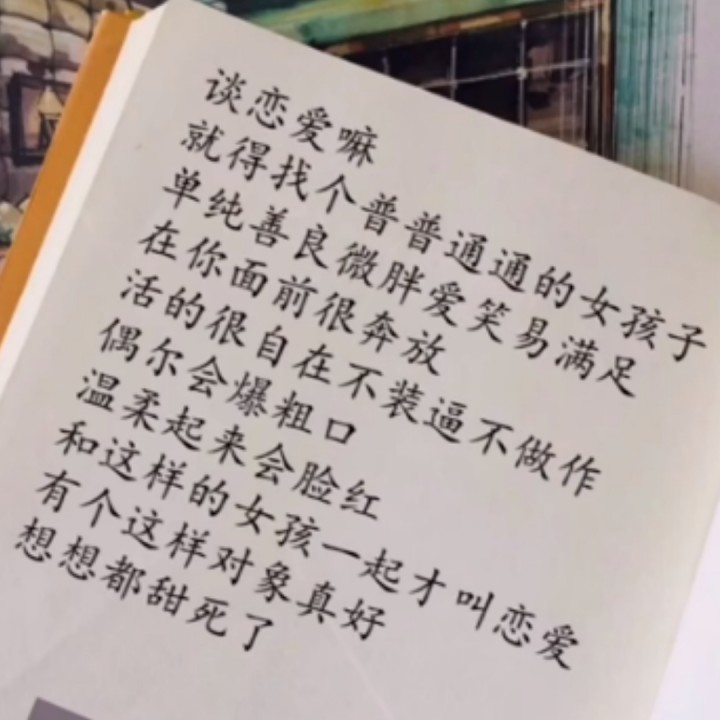 谈恋爱嘛
就得找个普普通通的女孩子
单纯善良微胖爱笑易满足
在你面前很奔放
活的很自在不装逼不做作
偶尔会爆粗口
温柔起来会脸红
和这样的女孩一起才叫恋爱
有个这样对象真好
想想都甜死了